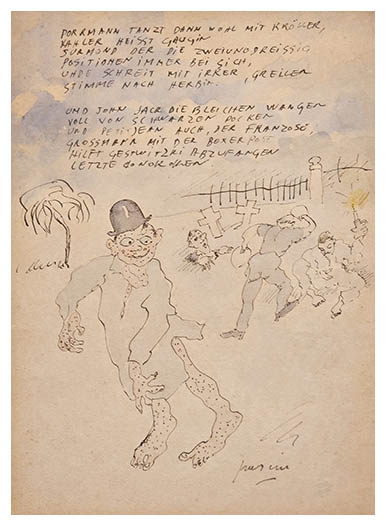 DORRMANN TANZT DANN WOHL MIT KRÖLLER,
KAHLER HEISST GAUGIN
SURMOND DER DIE ZWEIUNDDREISSIG
POSITIONEN IMMER BEI SICH,
UHDE SCHREIT MIT IRRER, GRELLEN
STIMME NACH HERBIN.
UND JOHN JACK DIE BLEICHEN WANGEN
VOLL VON SCHWARZEN POCKEN
UND PETITJEAN AUCH, DER FRANZOSE,
GROSSMANN MIT DER BOXERPOSE
HILFT ABZUFANGEN
LETZTE GONOKOKKEN